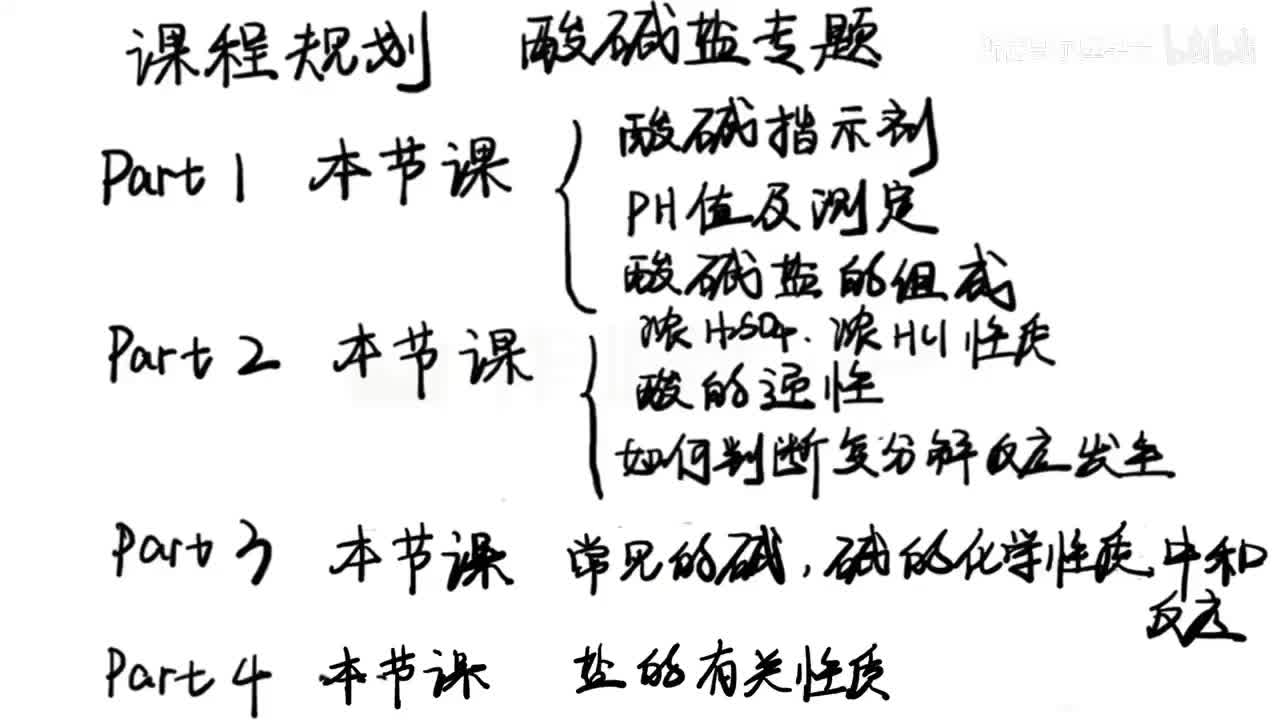 课程规划 酸碱盐专题
bilibili
Part 1 本节课
酸碱指示剂
PH值及测定
酸碱盐的组成
Part 2 本节课
浓H2SO4. 浓HCl 性质
酸的通性
如何判断复分解反应发生
Part 3 本节课 常见的碱,碱的化学性质、中和
反应
Part 4 本节课 盐的有关性质